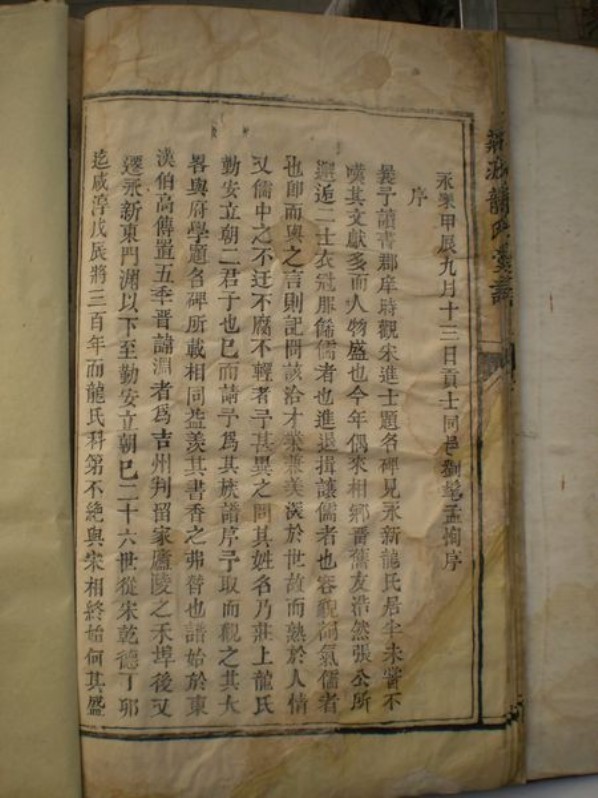 永樂甲辰九月十三日貢士同邑劉髦孟恂序
序
曩予讀書郡庠時觀宋進士題名碑見永新龍氏居半未嘗不
嘆其文獻多而人物盛也今年偶來相鄉舊友浩然張公所
邂逅二士衣冠服餙儒者也進退揖讓儒者也容貌詞氣儒者
也即而與之言則記問該洽才業兼美淡於世故而熟於人情
又儒中之不迂不腐不輕者予甚異之問其姓名乃莊上龍氏
勤安立朝二君子也已而請予爲其族譜序予取而觀之其大
畧與府學題名碑所載相同益羨其書香之弗替也譜始於東
漢伯高傳置五季晋諱淵者爲吉州判留家廬陵之禾埠後又
遷永新東門淵以下至勤安立朝已二十六世從宋乾德丁卯
迄咸淳戊辰將三百年而龍氏科第不絶與宋相終始何其盛
龍氏